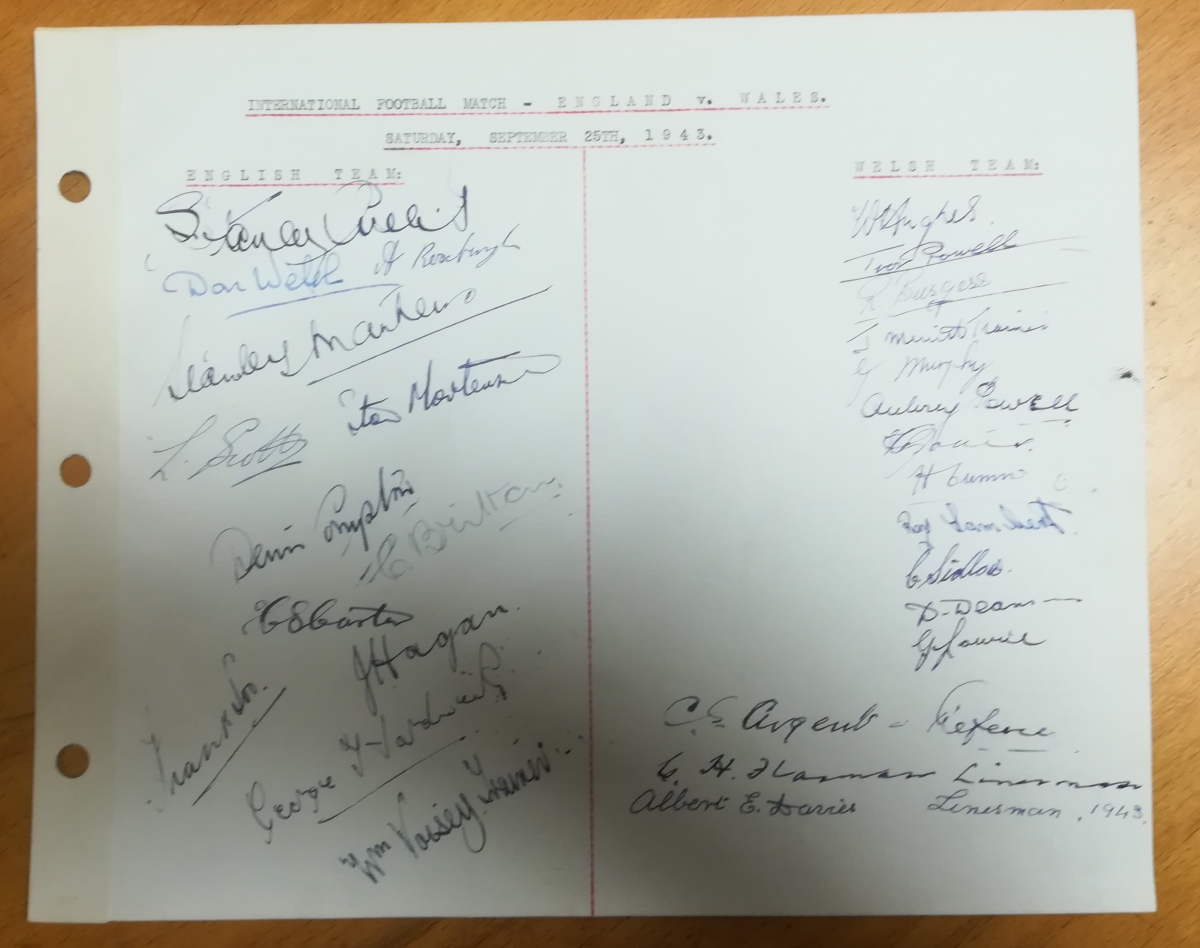 INTERNATIONAL FOOTBALL MATCH - ENGLAND v. WALES.
SATURDAY, SEPTEMBER 25TH, 1943.
ENGLISH TEAM:
Stanley Cullis
Don Welsh A Roxburgh
Stanley Matthews
Stan Mortensen
L. Scott
Denis Compton
C Britton
H S Carter
J Hagan.
Frank Soo.
George F Hardwick
Wm Voisey. Trainer
WELSH TEAM:
W Hughes.
Ivor Powell
R Burgess
Trainer
G Murphy
Aubrey Powell
Davies.
H Cumner
Roy Lambert
C Sidlow.
D-Dearson
G Lowrie
C. E. Argent - Referee
C. H. Flasman Linesman
Albert E. Davies Linesman, 1943.